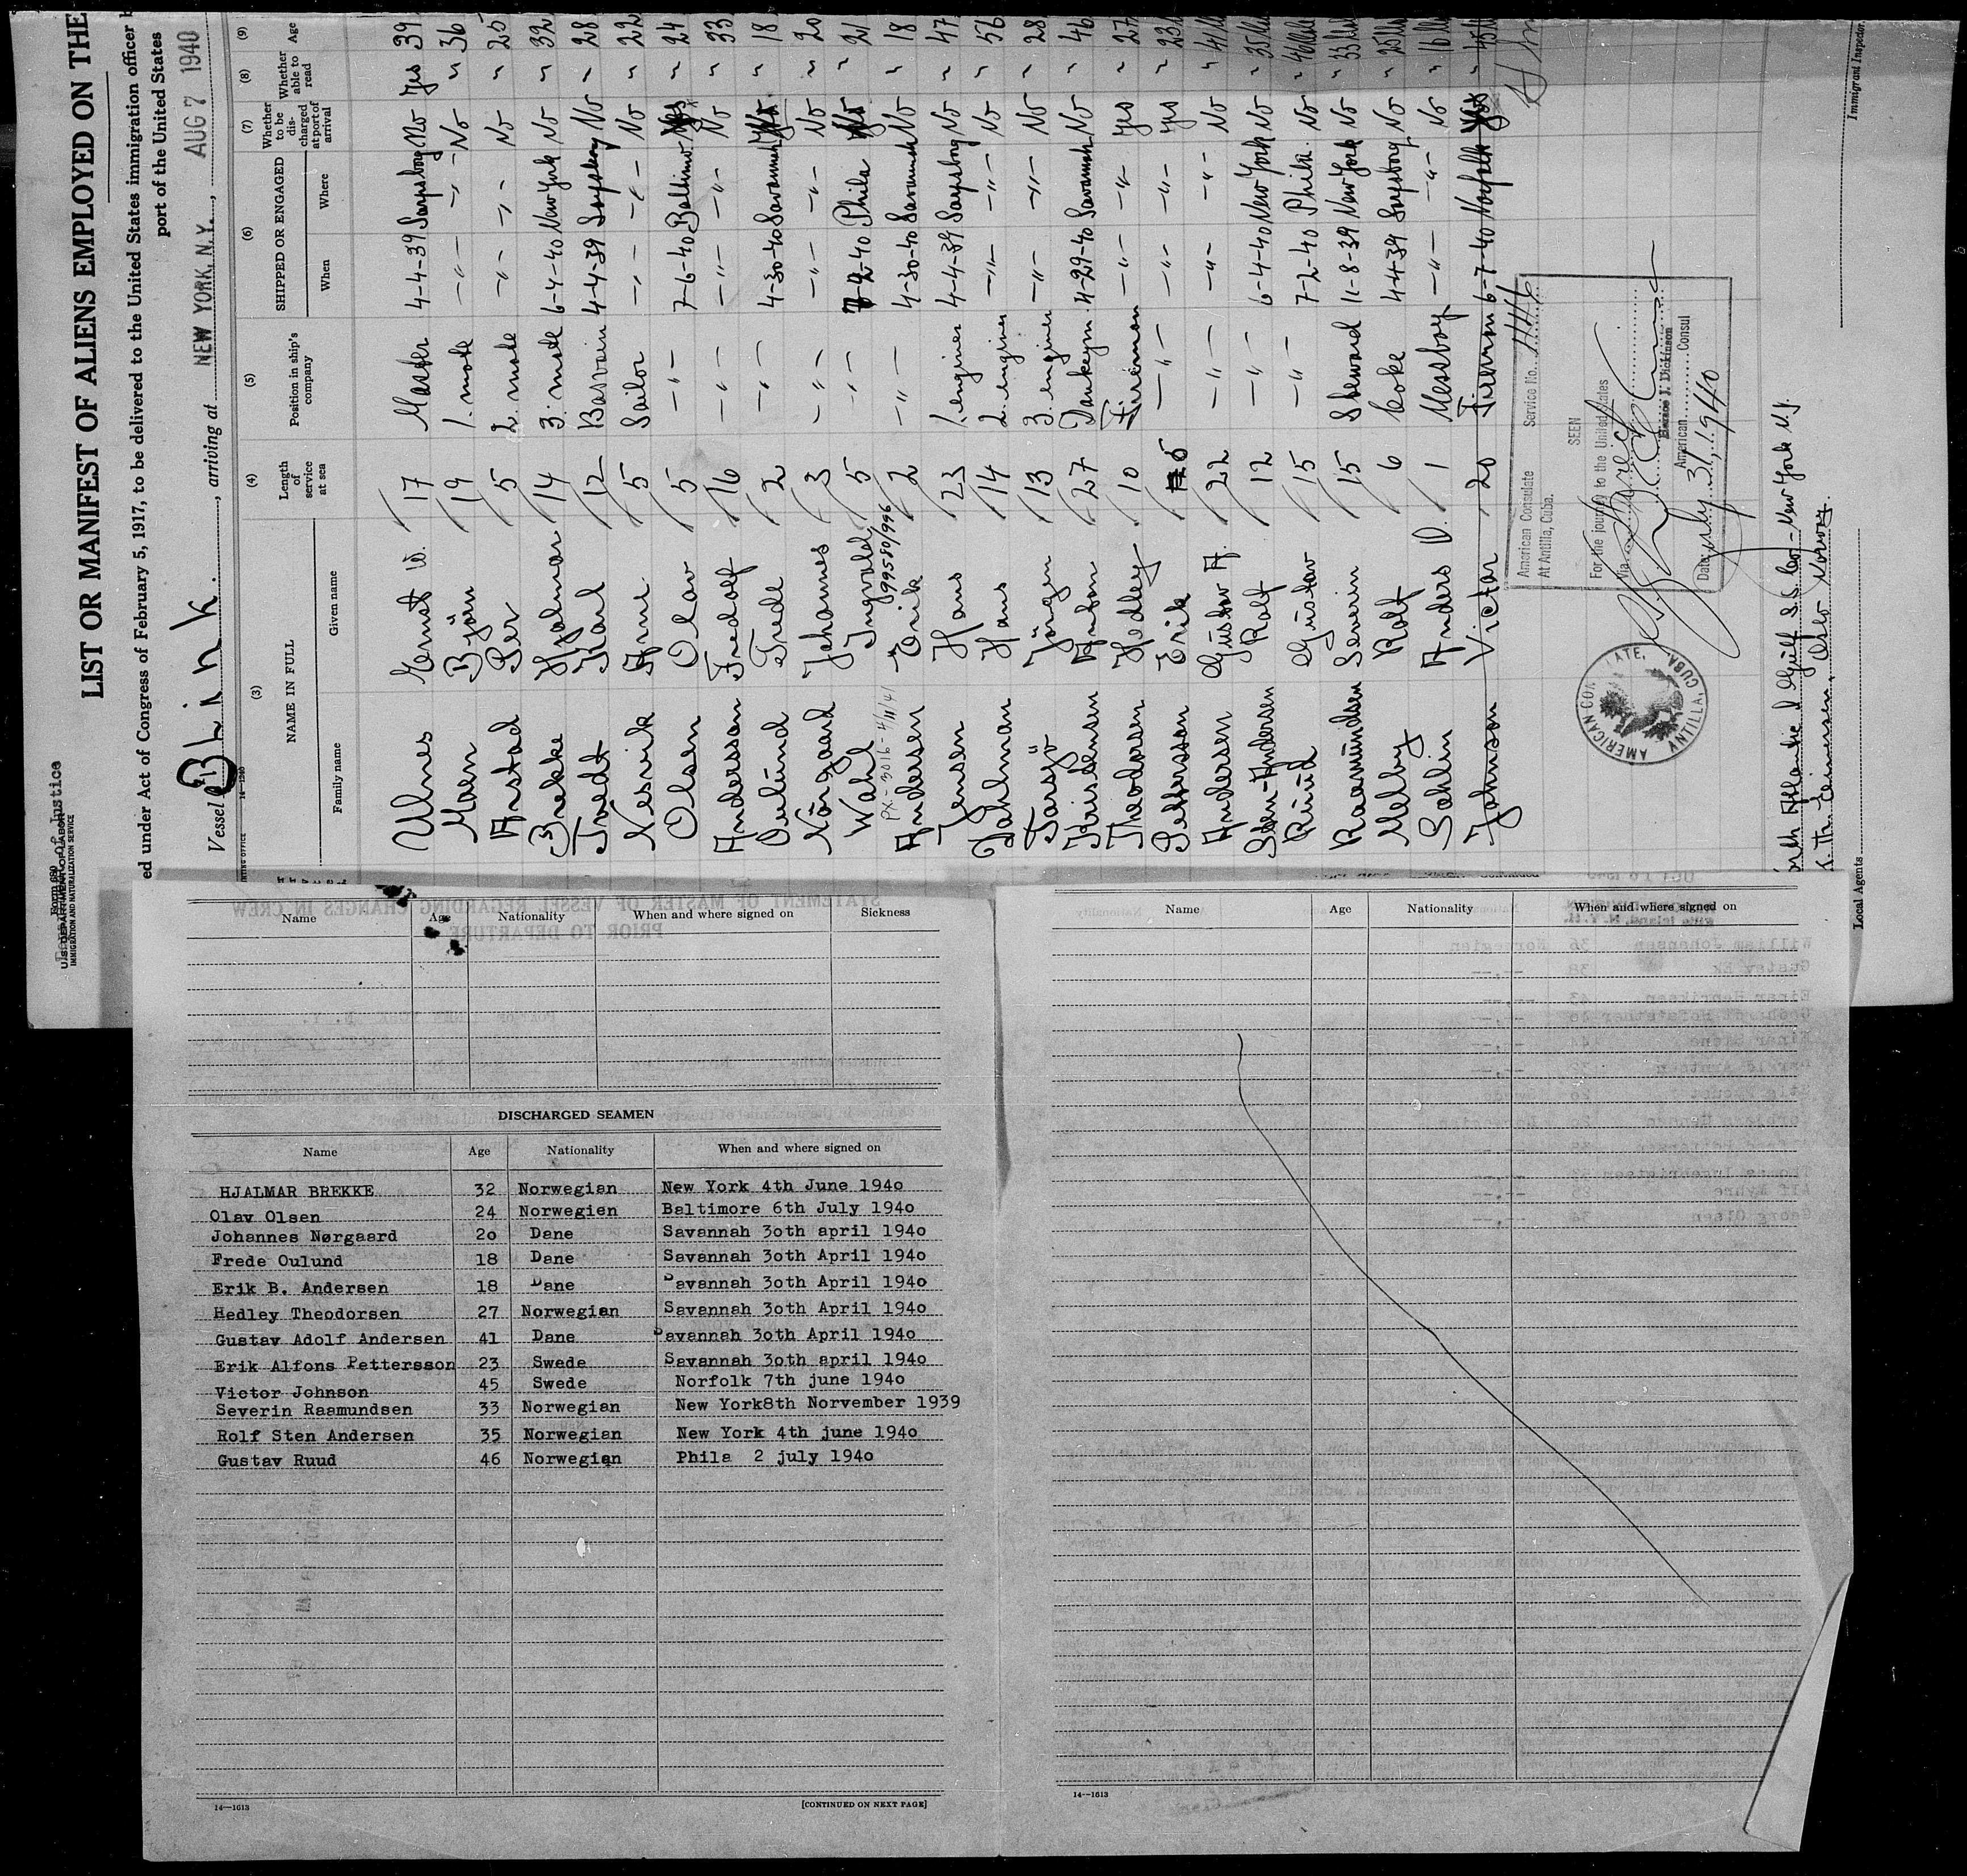 Form 680
Department of Justice
U.S. DEPARTMENT OF LABOR
IMMIGRATION AND NATURALIZATION SERVICE
LIST OR MANIFEST OF ALIENS EMPLOYED ON THE
ed under Act of Congress of February 5, 1917, to be delivered to the United States immigration officer
port of the United States
Vessel Blink., arriving at NEW YORK, N.Y., AUG 7 1940
(3) (4) (5) (6) (7) (8) (9)
NAME IN FULL Length of service at sea Position in ship's company SHIPPED OR ENGAGED Whether to be discharged at port of arrival Whether able to read Age
Family name Given name When Where
Ulnes Ernst W. 17 Master 4-4-39 Sarpsborg No Yes 39
Moen Björn 19 1. mate -"- -"- No " 36
Arstad Per 5 2. mate -"- -"- No " 25
Brekke Hjalmar 14 3. mate 6-4-40 New York No " 32
Tvedt Karl 12 Bosvain 4-4-39 Sarpsborg No " 28
Nesvik Arne 5 Sailor -"- -"- No " 22
Olsen Olav 5 -"- 7-6-40 Baltimo Yes " 24
Andersson Fredolf 16 -"- -"- -"- No " 33
Oulund Frede 2 -"- 4-30-40 Savannah " 18
Nörgaard Johannes 3 -"- -"- -"- No " 20
Wahl Ingvald 5 -"- 7-2-40 Phila " 21
PX-3016-4/11/41 99580/996
Andersen Erik 2 -"- 4-30-40 Savannah No " 18
Jensen Hans 23 1. enginer 4-4-39 Sarpsborg No " 47
Dahlman Hans 14 2. enginer -"- -"- No " 56
Farsjö Jörgen 13 3. enginer -"- -"- No " 28
Kristensen Anton 27 Donkeym. 4-29-40 Savannah No " 46
Theodorsen Hedley 10 Fireman -"- -"- Yes " 27
Pettersson Erik 5 -"- -"- -"- Yes " 23
Andersen Gustav A. 22 -"- -"- -"- No " 41
Sten-Andersen Rolf 12 -"- 6-4-40 New York No " 35
Ruud Gustav 15 -"- 7-2-40 Phila. No " 46
Raamundsen Severin 15 Steward 11-8-39 New York No " 33
Melby Rolf 6 Coke 4-4-39 Sarpsborg No " 25
Sohlin Anders D. 1 Messboy -"- -"- No " 16
Johnson Victor 20 Fireman 6-7-40 Norfolk Yes " 45
American Consulate Service No. 1441
At Antilla, Cuba.
SEEN
For the journey to the United States
Via
Horace J. Dickinson
American Consul
Date July 31, 1940
AMERICAN CONSULATE, ANTILLA, CUBA.
North Atlantic & Gulf S.S. Co - New York N.Y.
Oslo Norway.
Local Agents
Immigrant Inspector.
Name Age Nationality When and where signed on Sickness
DISCHARGED SEAMEN
Name Age Nationality When and where signed on
HJALMAR BREKKE 32 Norwegian New York 4th June 1940
Olav Olsen 24 Norwegien Baltimore 6th July 1940
Johannes Nørgaard 2o Dane Savannah 3oth april 194o
Frede Oulund 18 Dane Savannah 3oth April 194o
Erik B. Andersen 18 Dane Savannah 3oth April 194o
Hedley Theodorsen 27 Norwegian Savannah 3oth April 194o
Gustav Adolf Andersen 41 Dane Savannah 3oth April 194o
Erik Alfons Pettersson 23 Swede Savannah 3oth april 194o
Victor Johnson 45 Swede Norfolk 7th june 194o
Severin Raamundsen 33 Norwegian New York8th Norvember 1939
Rolf Sten Andersen 35 Norwegian New York 4th june 194o
Gustav Ruud 46 Norwegian Phila 2 july 194o
14—1613
[CONTINUED ON NEXT PAGE]
Name Age Nationality When and where signed on
14—1613